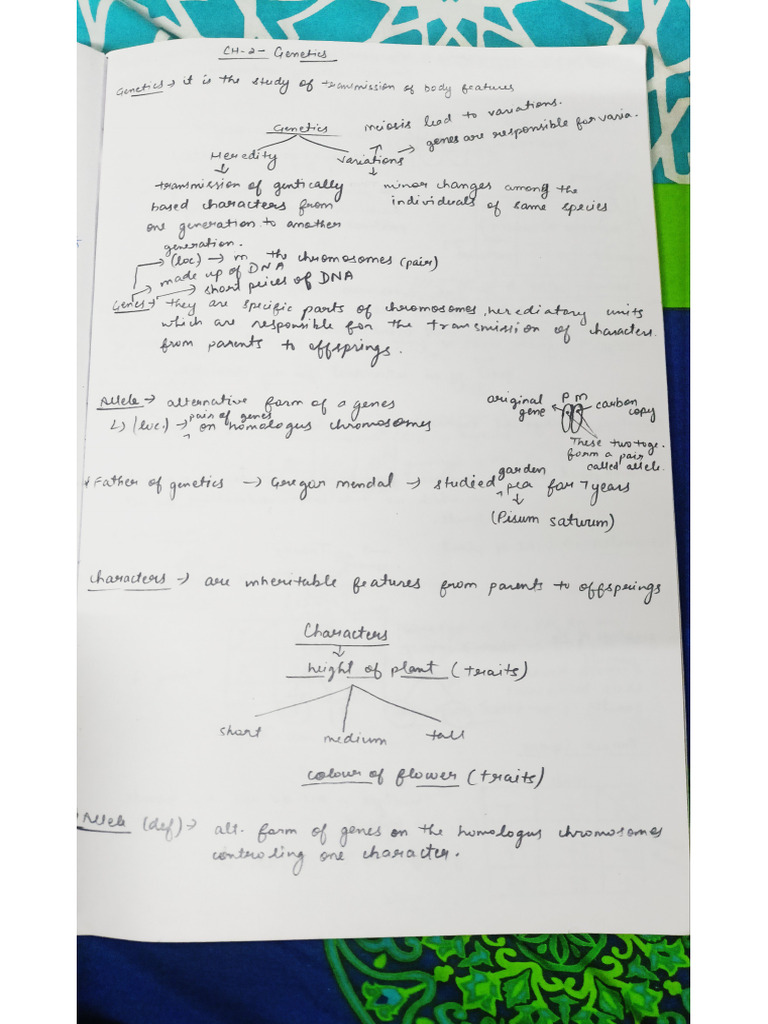 CH-2- Genetics
Genetics → it is the study of transmission of body features
Genetics
meiosis lead to variations.
genes are responsible for varia.
Heredity
variations
transmission of gentically
based characters from
one generation to another
generation.
minor changes among the
individuals of same species
(loc) → in the chromosomes (pair)
made up of DNA
short peices of DNA
Genes → they are specific parts of chromosomes, herediatary units
which are responsible for the transmission of characters
from parents to offsprings.
Allele → alternative form of a genes
(loc.) → on homologus chromosomes
pair of genes
original
gene
P m
carbon
copy
These two toge.
form a pair
called allele.
Father of genetics → Gregor mendal → studied garden pea for 7 years
(Pisum satuvum)
characters → are inheritable features from parents to offsprings
Characters
height of plant (traits)
short
medium
tall
colour of flower (traits)
Allele (def) → alt. form of genes on the homologus chromosomes
controling one character.